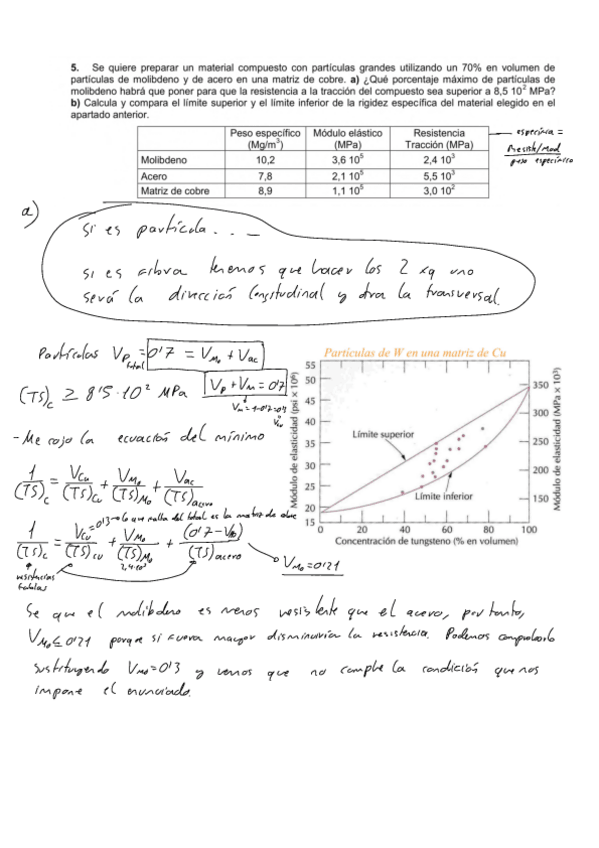 5. Se quiere preparar un material compuesto con partículas grandes utilizando un 70% en volumen de
partículas de molibdeno y de acero en una matriz de cobre. a) ¿Qué porcentaje máximo de partículas de
molibdeno habrá que poner para que la resistencia a la tracción del compuesto sea superior a 8,5 10² MPa?
b) Calcula y compara el límite superior y el límite inferior de la rigidez específica del material elegido en el
apartado anterior.
Peso específico (Mg/m³) Módulo elástico (MPa) Resistencia Tracción (MPa)
Molibdeno 10,2 3,6 10⁵ 2,4 10³
Acero 7,8 2,1 10⁵ 5,5 10³
Matriz de cobre 8,9 1,1 10⁵ 3,0 10²
específica =
Resist/Mod
peso específico
a)
si es partícula...
si es fibra tenemos que hacer los 2 xq uno
será la dirección longitudinal y otra la transversal
Partículas V_P total = 0'7 = V_Mo + V_ac
(TS)_c ≥ 8'5·10² MPa
V_P + V_m = 0'7
- Me cojo la ecuación del mínimo
1/(TS)_c = V_Cu/(TS)_Cu + V_Mo/(TS)_Mo + V_ac/(TS)_acero
= 0'3 → lo que falta del total es la matriz de cobre
1/(TS)_c = V_Cu/(TS)_Cu + V_Mo/(TS)_Mo + (0'7 - V_Mo)/(TS)_acero
2,4·10³
resistencias
totales
V_Mo = 0'21
Partículas de W en una matriz de Cu
Módulo de elasticidad (psi × 10⁶)
55
50
45
40
35
30
25
20
15
Límite superior
Límite inferior
350
300
250
200
150
Módulo de elasticidad (MPa × 10³)
0 20 40 60 80 100
Concentración de tungsteno (% en volumen)
Se que el molibdeno es menos resistente que el acero, por tanto,
V_Mo ≤ 0'21 porque si fuera mayor disminuiría la resistencia. Podemos comprobarlo
sustituyendo V_Mo = 0'3 y vemos que no cumple la condición que nos
impone el enunciado.